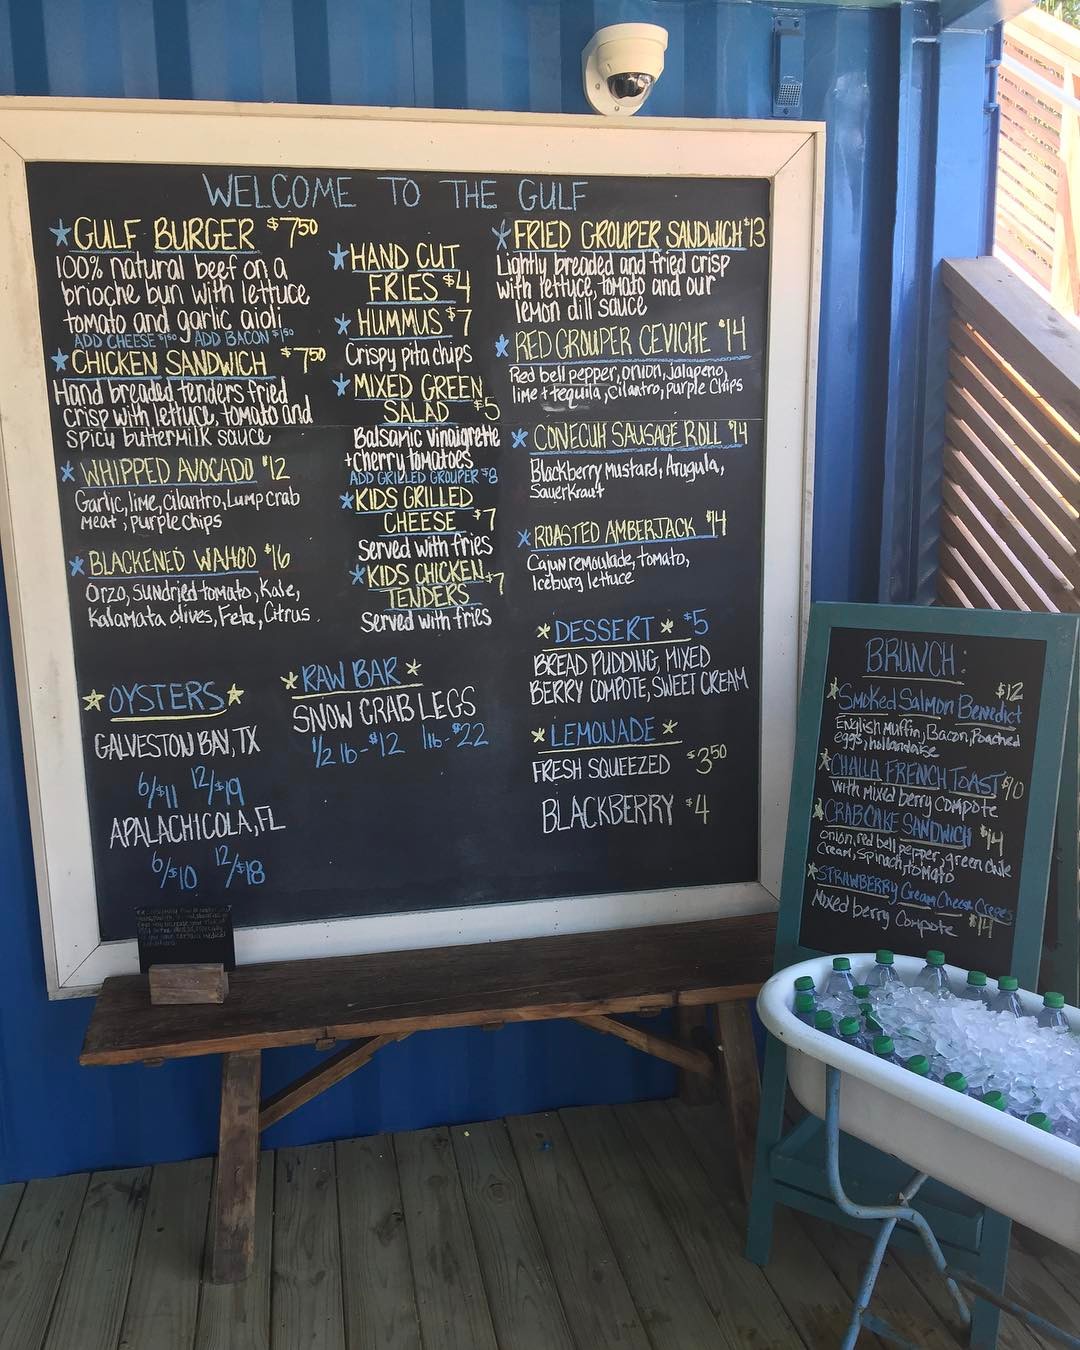 WELCOME TO THE GULF
* GULF BURGER $7.50
100% natural beef on a
brioche bun with lettuce
tomato and garlic aioli
ADD CHEESE $1.50 ADD BACON $1.50
* CHICKEN SANDWICH $7.50
Hand breaded tenders fried
crisp with lettuce, tomato and
spicy buttermilk sauce
* WHIPPED AVOCADO $12
Garlic, lime, cilantro, Lump crab
meat, purple chips
* BLACKENED WAHOO $16
Orzo, sundried tomato, Kale,
Kalamata olives, Feta, Citrus.
* HAND CUT
FRIES $4
* HUMMUS $7
Crispy pita chips
* MIXED GREEN
SALAD $5
Balsamic vinaigrette
+ cherry tomatoes
ADD GRILLED GROUPER $8
* KIDS GRILLED
CHEESE $7
Served with fries
* KIDS CHICKEN $7
TENDERS
Served with fries
* FRIED GROUPER SANDWICH $13
Lightly breaded and fried crisp
with lettuce, tomato and our
lemon dill sauce
* RED GROUPER CEVICHE $14
Red bell pepper, onion, jalapeno,
lime + tequila, cilantro, purple chips
* CONECUH SAUSAGE ROLL $14
Blackberry Mustard, Arugula,
Sauerkraut
* ROASTED AMBERJACK $14
Cajun remoulade, tomato,
Iceburg lettuce
* OYSTERS *
GALVESTON BAY, TX
6/$11 12/$19
APALACHICOLA, FL
6/$10 12/$18
* RAW BAR *
SNOW CRAB LEGS
1/2 lb - $12 1 lb - $22
* DESSERT * $5
BREAD PUDDING, MIXED
BERRY COMPOTE, SWEET CREAM
* LEMONADE *
FRESH SQUEEZED $3.50
BLACKBERRY $4
BRUNCH:
* Smoked Salmon Benedict $12
English Muffin, Bacon, Poached
eggs, hollandaise
* CHALLA FRENCH TOAST $10
with mixed berry compote
* CRABCAKE SANDWICH $14
onion, red bell pepper, green chile
Cream, spinach, tomato
* STRAWBERRY Cream Cheese Crepes
Mixed berry Compote $14